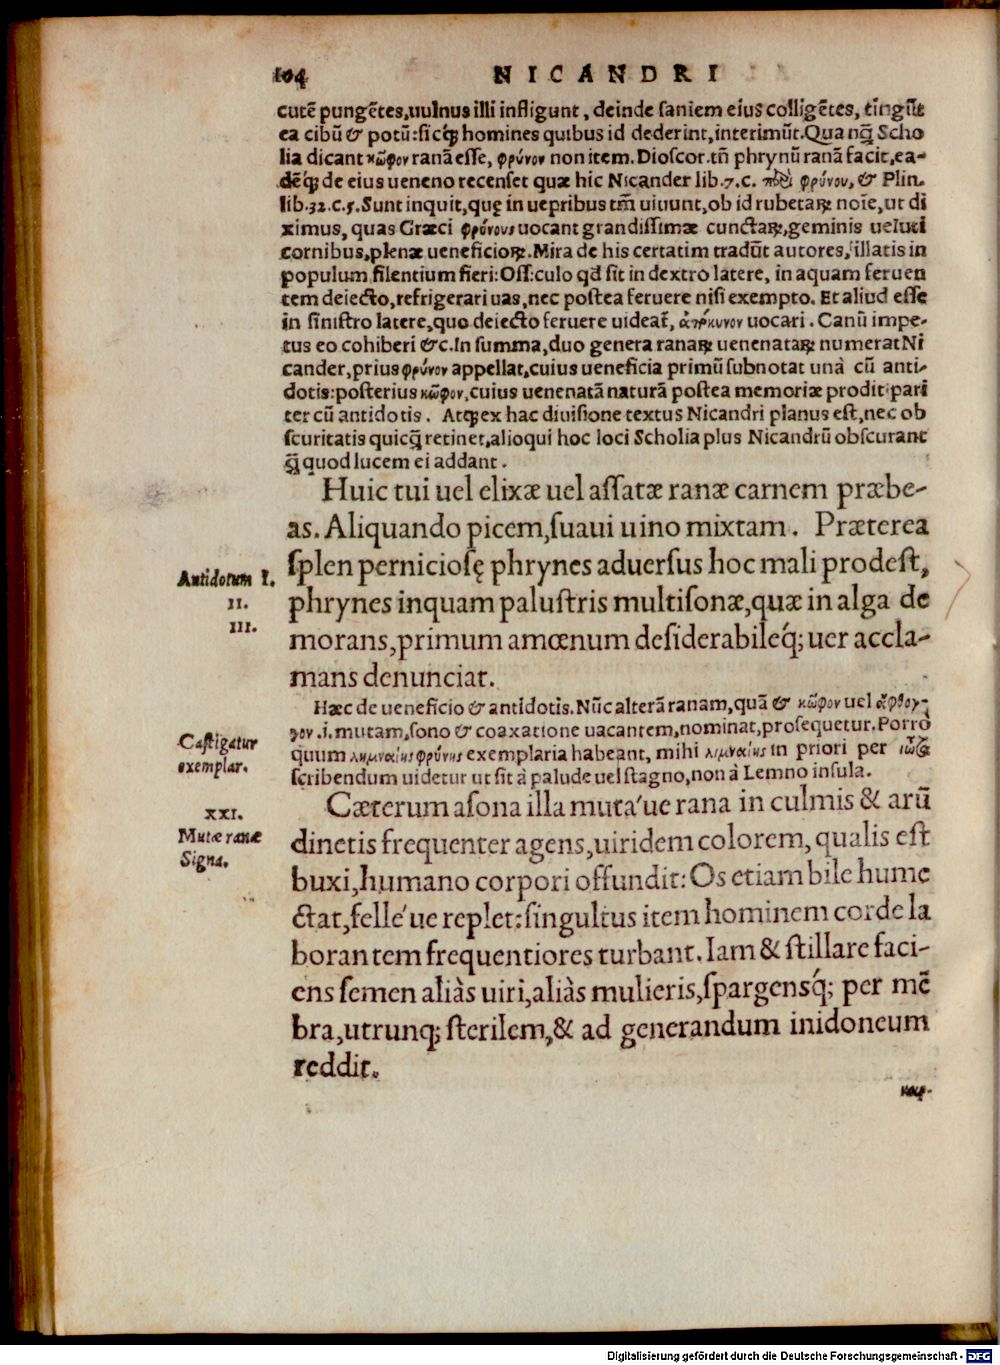 104 NICANDRI
cutē pungētes, uulnus illi infligunt, deinde saniem eius colligētes, tingūt
ea cibū & potū: sicq; homines quibus id dederint, interimūt. Quanq̄ Scho
lia dicant κῶφον ranā esse, φρύνον non item. Dioscor. tñ phrynū ranā facit, ea-
dēq́; de eius ueneno recenset quæ hic Nicander lib. 7. c. φρύνου, & Plin.
lib. 32. c. 5. Sunt inquit, quę in uepribus tm̄ uiuunt, ob id rubetaꝝ noīe, ut di
ximus, quas Græci φρύνους uocant grandissimæ cunctaꝝ, geminis ueluti
cornibus, plenæ ueneficioꝝ. Mira de his certatim tradūt autores, illatis in
populum silentium fieri: Ossiculo qđ sit in dextro latere, in aquam feruen
tem deiecto, refrigerari uas, nec postea feruere nisi exempto. Et aliud esse
in sinistro latere, quo deiecto feruere uideat̄, ἀπόκυνον uocari. Canū impe-
tus eo cohiberi &c. In summa, duo genera ranaꝝ uenenataꝝ numerat Ni
cander, prius φρύνον appellat, cuius ueneficia primū subnotat unà cū anti-
dotis: posterius κῶφον, cuius uenenatā naturā postea memoriæ prodit pari
ter cū antidotis. Atq; ex hac diuisione textus Nicandri planus est, nec ob
scuritatis quicq̄ retinet, alioqui hoc loci Scholia plus Nicandrū obscurant
q̄ quod lucem ei addant.
Huic tui uel elixæ uel assatæ ranæ carnem præbe-
as. Aliquando picem, suaui uino mixtam. Præterea
Antidotum I. splen perniciosę phrynes aduersus hoc mali prodest,
II. phrynes inquam palustris multisonæ, quæ in alga de
III. morans, primum amœnum desiderabileq́; uer accla-
mans denunciat.
Hæc de ueneficio & antidotis. Nūc alterā ranam, quā & κῶφον uel ἄφθογ-
γον .i. mutam, sono & coaxatione uacantem, nominat, prosequetur. Porrò
Castigatur quum λημναίης φρύνης exemplaria habeant, mihi λιμναίης in priori per ἰῶτα
exemplar. scribendum uidetur ut sit à palude uel stagno, non à Lemno insula.
XXI. Cæterum asona illa muta´ue rana in culmis & arū
Mutæ ranæ dinetis frequenter agens, uiridem colorem, qualis est
Signa. buxi, humano corpori offundit: Os etiam bile hume
ctat, felle´ue replet: singultus item hominem corde la
borantem frequentiores turbant. Iam & stillare faci-
ens semen aliàs uiri, aliàs mulieris, spargensq́; per mē
bra, utrunq; sterilem, & ad generandum inidoneum
reddit.
Digitalisierung gefördert durch die Deutsche Forschungsgemeinschaft - DFG